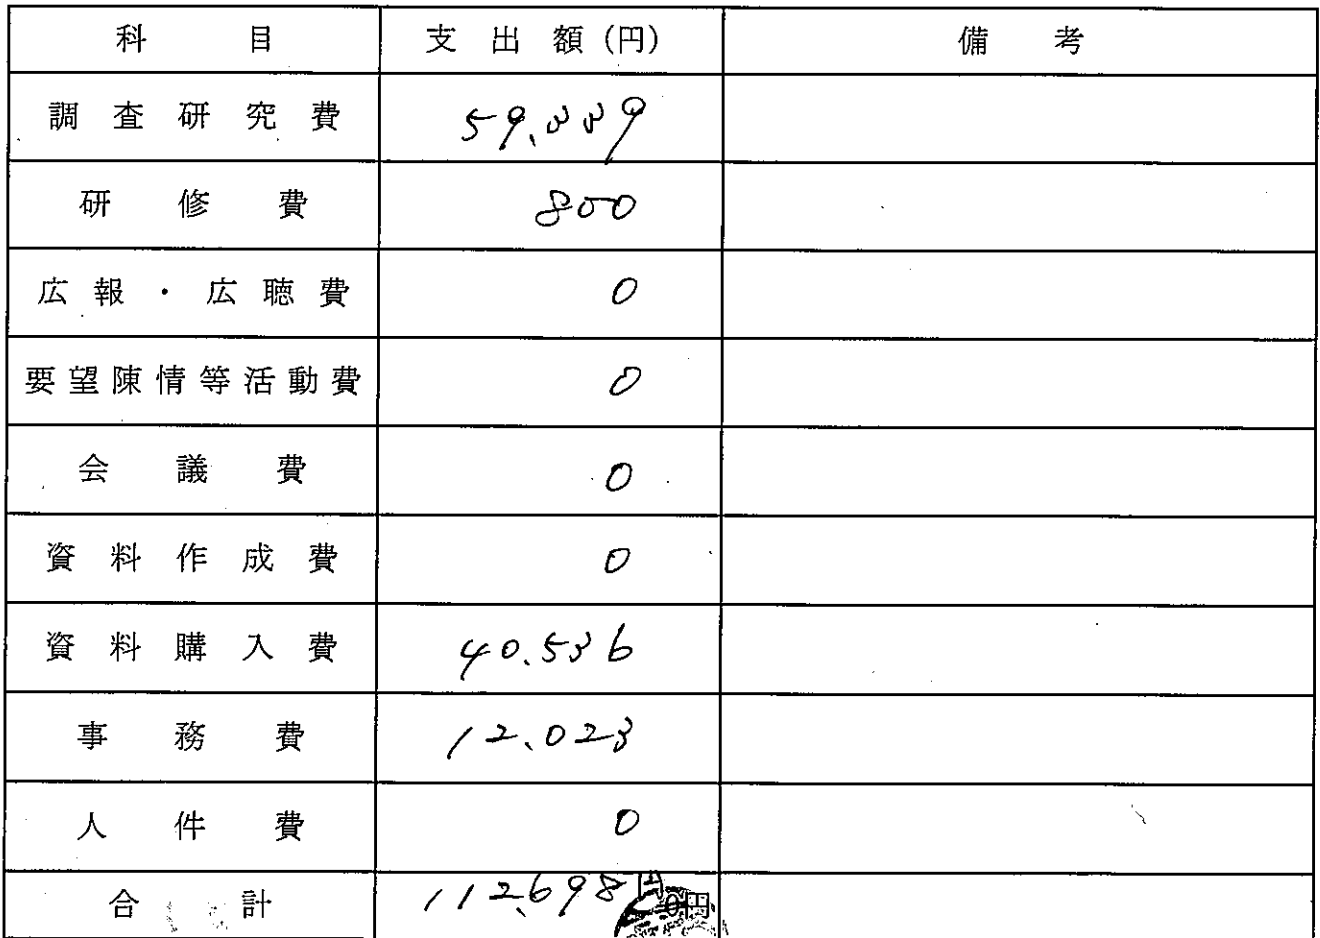 科目 支出額(円) 備考
調査研究費 59,339
研修費 800
広報・広聴費 0
要望陳情等活動費 0
会議費 0
資料作成費 0
資料購入費 40.536
事務費 12,023
人件費 0
合計 112,698円 0円